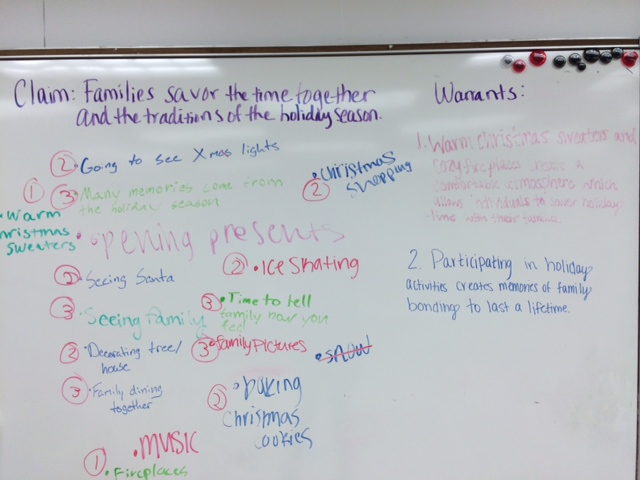 Claim: Families savor the time together
and the traditions of the holiday season.
② Going to see Xmas lights
① ③ Many memories come from
the holiday season
② • Christmas
shopping
• Warm
christmas
sweaters
• opening presents
② • Seeing Santa
② • Ice Skating
③ Seeing family
③ • Time to tell
family how you
feel
② • Decorating tree/
house
③ • Family Pictures
• snow
③ • Family dining
together
② • baking
Christmas
cookies
① • MUSIC
• Fireplaces
Warrants:
1. Warm Christmas sweaters and
cozy fireplaces create a
comfortable atmosphere which
allows individuals to savor holiday
time with their families.
2. Participating in holiday
activities creates memories of family
bonding to last a lifetime.